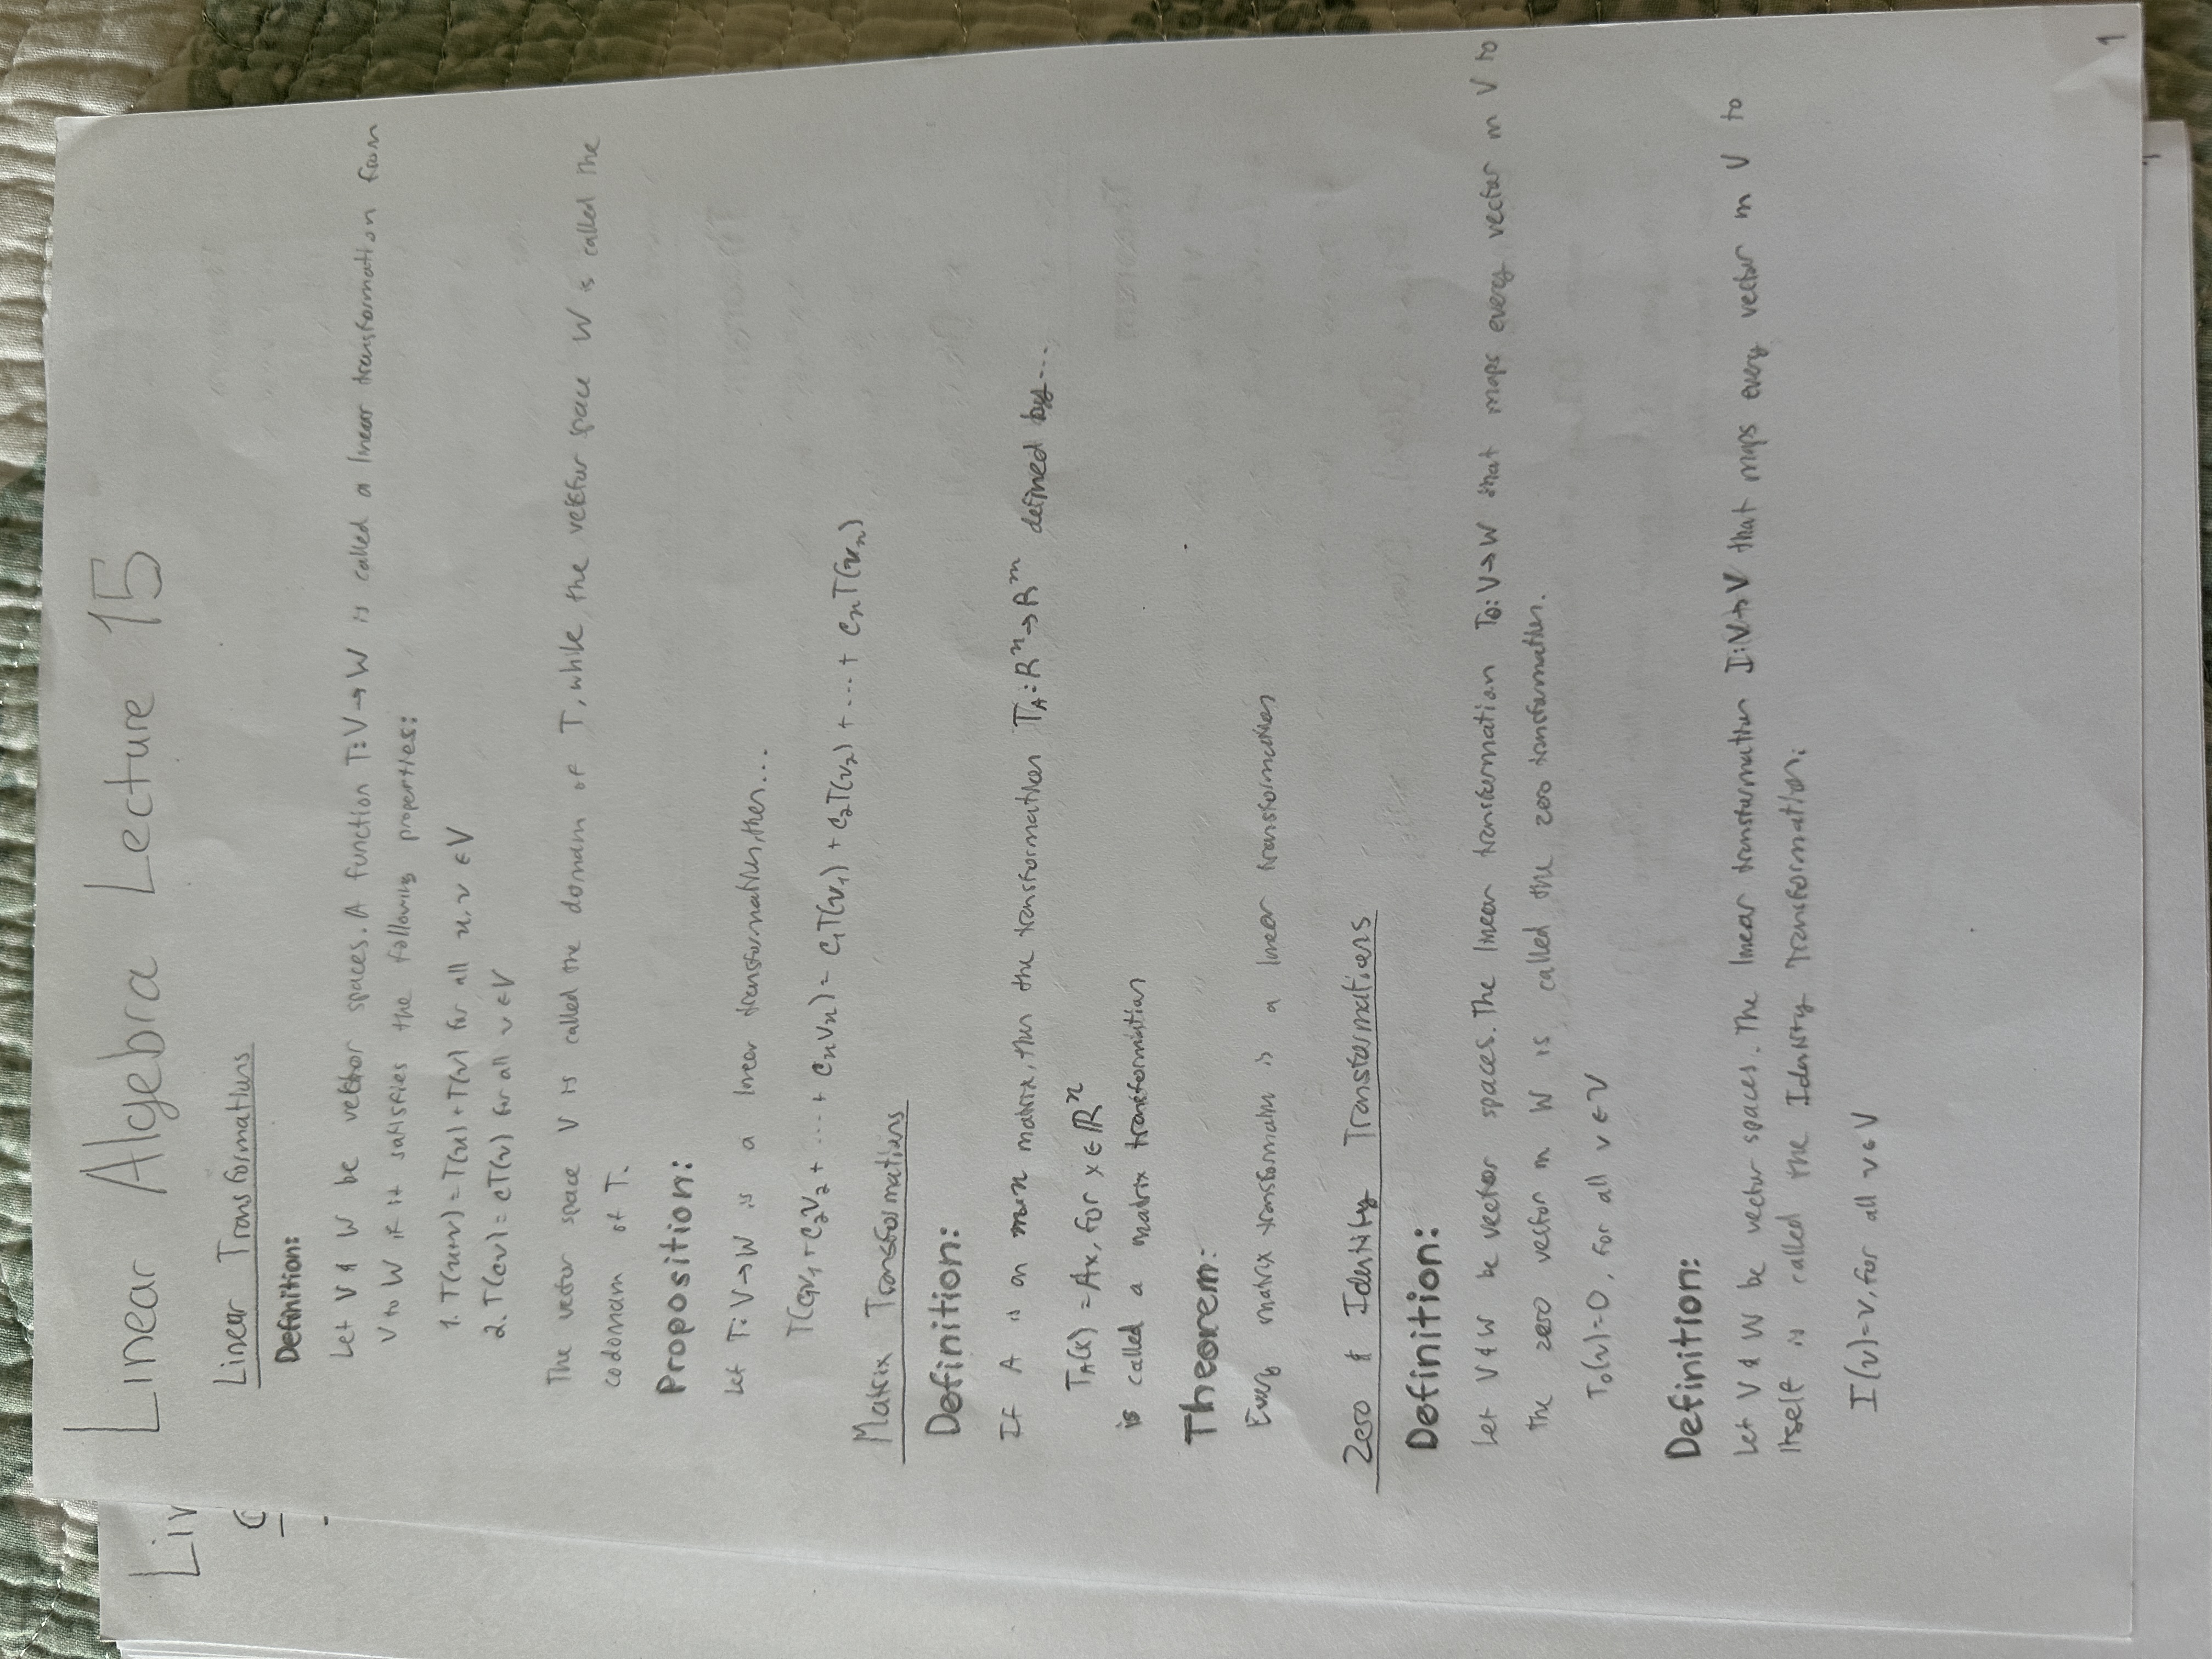 Linear Algebra Lecture 15
Linear Transformations
Definition:
Let V & W be vector spaces. A function T:V→W is called a linear transformation from
V to W if it satisfies the following properties:
1. T(u+v) = T(u) + T(v) for all u, v ∈ V
2. T(cv) = cT(v) for all v ∈ V
The vector space V is called the domain of T, while the vector space W is called the
codomain of T.
Proposition:
Let T:V→W is a linear transformation, then...
T(c₁v₁ + c₂v₂ + ... + cₙvₙ) = c₁T(v₁) + c₂T(v₂) + ... + cₙT(vₙ)
Matrix Transformations
Definition:
If A is an m×n matrix, then the transformation T_A: Rⁿ→Rᵐ defined by...
T_A(x) = Ax, for x ∈ ℝⁿ
is called a matrix transformation
Theorem:
Every matrix transformation is a linear transformation
Zero & Identity Transformations
Definition:
Let V & W be vector spaces. The linear transformation T₀: V→W that maps every vector in V to
the zero vector in W is called the zero transformation.
T₀(v)=0, for all v ∈ V
Definition:
Let V & W be vector spaces. The linear transformation I: V→V that maps every vector in V to
itself is called the Identity Transformation.
I(v)=v, for all v ∈ V
1